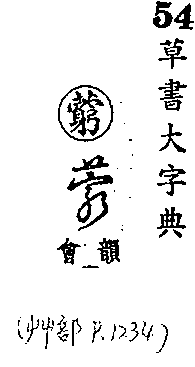 54
草書大字典
藭
韻會
(艸部 P.1234)